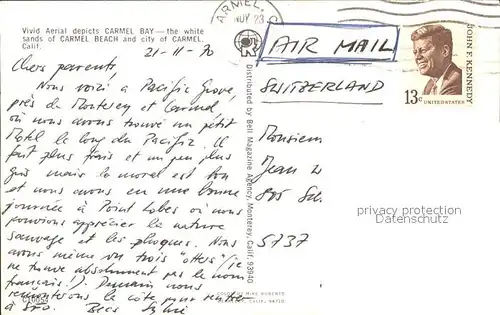 Vivid Aerial depicts CARMEL BAY — the white
sands of CARMEL BEACH and city of CARMEL.
Calif.
21-11-70
Chers parents,
Nous voici à Pacific Grove,
près de Monterey et Carmel
où nous avons trouvé un petit
Motel le long du Pacific. Il
fait plus frais et un peu plus
gris mais le moral est bon
et nous avons eu une bonne
journée à Point Lobos où nous
pouvions apprécier la nature
sauvage et les phoques. Nous
avons même vu trois "otters" (je
ne trouve absolument pas le nom
français!). Demain nous
remonterons la côte pour rentrer
à
Distributed by Bell Magazine Agency, Monterey, Calif. 93940
COLOR BY MIKE ROBERTS
CALIF. 94710
CARMEL, C
NOV 23
AIR MAIL
JOHN F. KENNEDY
13c
UNITED STATES
SWITZERLAND
Monsieur
Jean
5737
privacy protection
Datenschutz